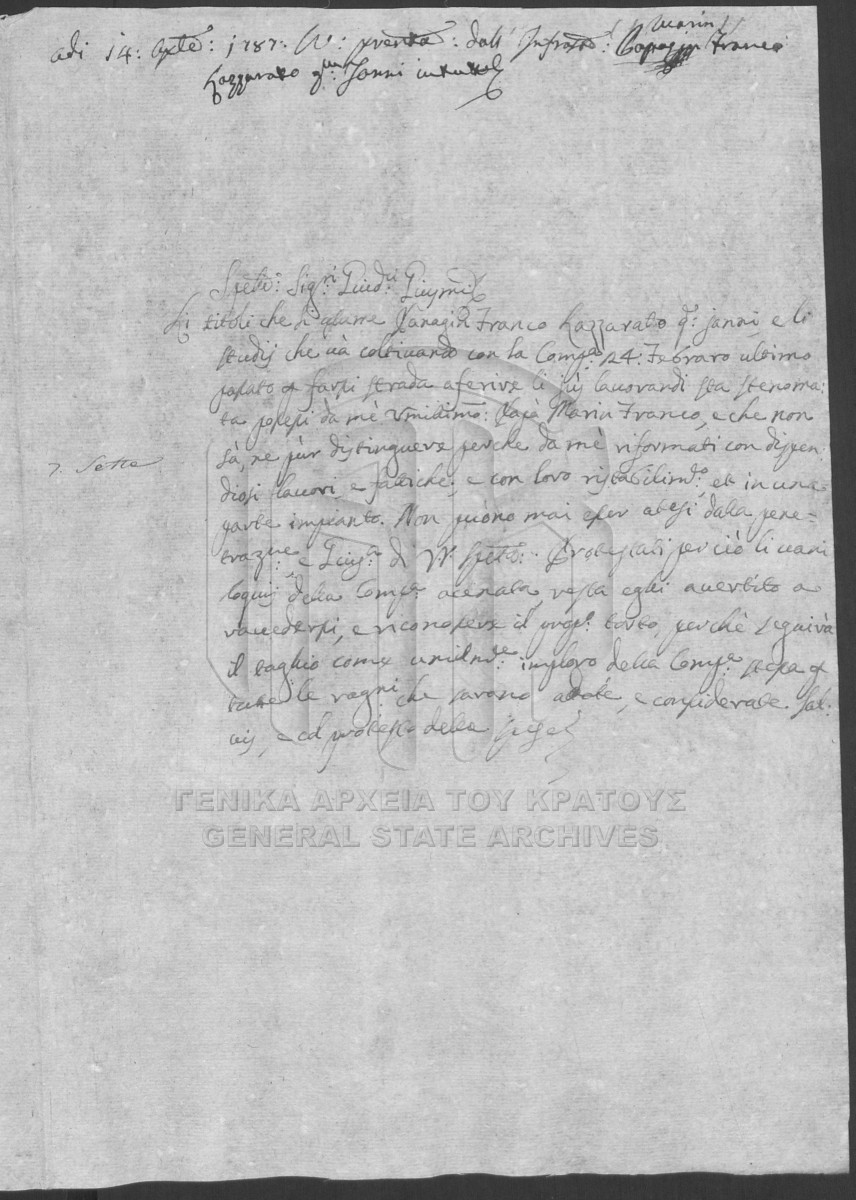 Marin
adi 14: 7bre: 1787. V: pventa: dall' Infratto: Franco
Lazzarato qm: Janni
Spetti: Sigri: Giud:
Li titoli che Panagin Franco Lazzarato q: Janni, e li
studij che và coltivando con la Compa: 24: Febraro ultimo
passato farsi strada a ferire li lavorandi sta stenoma:
ta da mè Umidimo: Papà Marin Franco, e che non
sà, ne pùr distinguere perche da mè riformati con dispen:
7. Sette
diosi lavori, e fatiche, e con loro ristabilimto, et in una
parte impianto. Non puono mai esser della pene=
trazne: e di VV. Spette: Protestati perciò li vani
loquij della Compa: acenata, resta egli avertito a
ravedersi, e riconoscere il propo: torto, perchè seguirà
il taglio come umilmte: imploro della Compa: stessa
tutte le ragni: che sarono adote, e considerate sal:
vis, e col protesto delle spese
ΓΕΝΙΚΑ ΑΡΧΕΙΑ ΤΟΥ ΚΡΑΤΟΥΣ
GENERAL STATE ARCHIVES